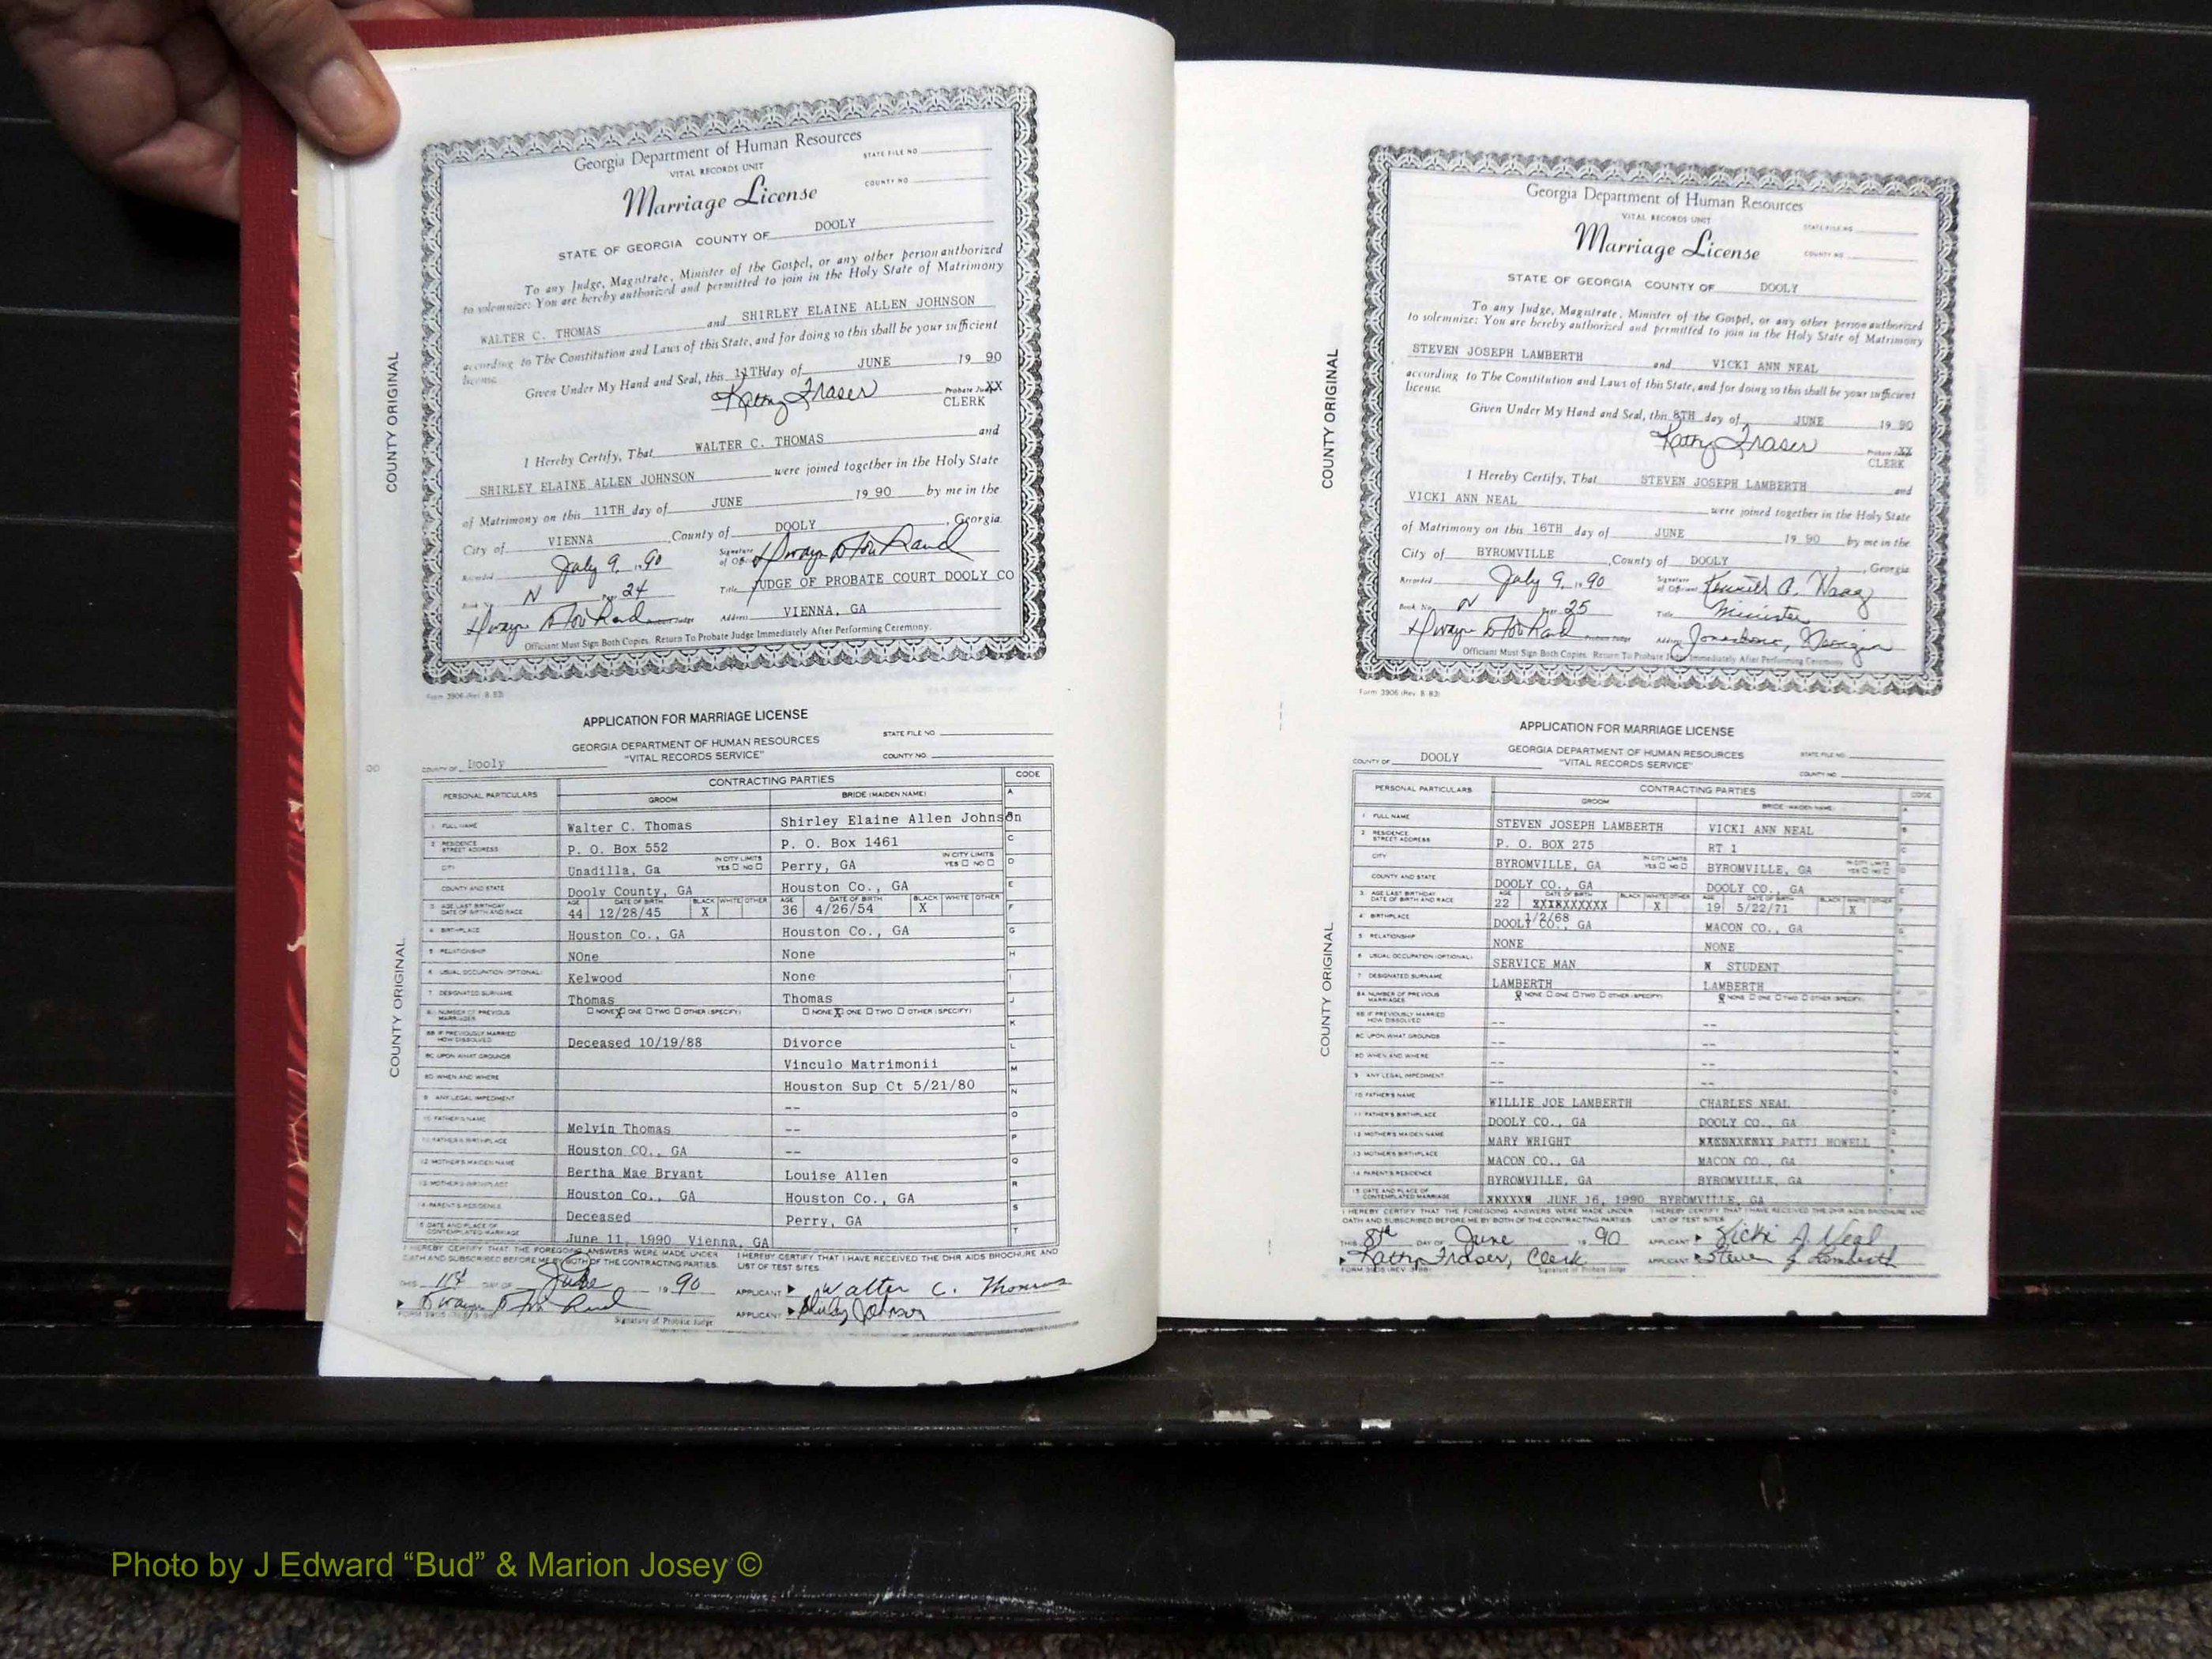 Georgia Department of Human Resources
VITAL RECORDS UNIT
STATE FILE NO
Marriage License
COUNTY NO
STATE OF GEORGIA COUNTY OF DOOLY
To any Judge, Magistrate, Minister of the Gospel, or any other person authorized
to solemnize: You are hereby authorized and permitted to join in the Holy State of Matrimony
WALTER C. THOMAS and SHIRLEY ELAINE ALLEN JOHNSON
according to The Constitution and Laws of this State, and for doing so this shall be your sufficient
license.
Given Under My Hand and Seal, this 11TH day of JUNE 19 90
Kathy Fraser Probate Judge XX
CLERK
I Hereby Certify, That WALTER C. THOMAS and
SHIRLEY ELAINE ALLEN JOHNSON were joined together in the Holy State
of Matrimony on this 11TH day of JUNE 19 90 by me in the
City of VIENNA County of DOOLY, Georgia
Recorded July 9, 19 90 Signature of Official
Book No. N Page 24 Title JUDGE OF PROBATE COURT DOOLY CO
Probate Judge Address VIENNA, GA
Officiant Must Sign Both Copies. Return To Probate Judge Immediately After Performing Ceremony.
Form 3906 (Rev. 8-83)
COUNTY ORIGINAL
APPLICATION FOR MARRIAGE LICENSE
GEORGIA DEPARTMENT OF HUMAN RESOURCES
"VITAL RECORDS SERVICE"
STATE FILE NO.
COUNTY NO.
COUNTY OF Dooly
PERSONAL PARTICULARS CONTRACTING PARTIES CODE
GROOM BRIDE (MAIDEN NAME) A
1 FULL NAME Walter C. Thomas Shirley Elaine Allen Johnson
2 RESIDENCE STREET ADDRESS P. O. Box 552 P. O. Box 1461 C
CITY Unadilla, Ga IN CITY LIMITS YES NO Perry, GA IN CITY LIMITS YES NO D
COUNTY AND STATE Dooly County, GA Houston Co., GA E
3 AGE LAST BIRTHDAY DATE OF BIRTH AND RACE AGE 44 DATE OF BIRTH 12/28/45 BLACK X WHITE OTHER AGE 36 DATE OF BIRTH 4/26/54 BLACK X WHITE OTHER F
4 BIRTHPLACE Houston Co., GA Houston Co., GA G
5 RELATIONSHIP NOne None H
6 USUAL OCCUPATION (OPTIONAL) Kelwood None I
7 DESIGNATED SURNAME Thomas Thomas J
8A NUMBER OF PREVIOUS MARRIAGES NONE X ONE TWO OTHER (SPECIFY) NONE X ONE TWO OTHER (SPECIFY) K
8B IF PREVIOUSLY MARRIED HOW DISSOLVED Deceased 10/19/88 Divorce L
8C UPON WHAT GROUNDS Vinculo Matrimonii M
8D WHEN AND WHERE Houston Sup Ct 5/21/80 N
9 ANY LEGAL IMPEDIMENT -- O
10 FATHER'S NAME Melvin Thomas -- P
11 FATHER'S BIRTHPLACE Houston CO., GA --
12 MOTHER'S MAIDEN NAME Bertha Mae Bryant Louise Allen Q
13 MOTHER'S BIRTHPLACE Houston Co., GA Houston Co., GA R
14 PARENT'S RESIDENCE Deceased Perry, GA S
15 DATE AND PLACE OF CONTEMPLATED MARRIAGE June 11, 1990 Vienna, GA T
I HEREBY CERTIFY THAT THE FOREGOING ANSWERS WERE MADE UNDER
OATH AND SUBSCRIBED BEFORE ME BY BOTH OF THE CONTRACTING PARTIES.
I HEREBY CERTIFY THAT I HAVE RECEIVED THE DHR AIDS BROCHURE AND
LIST OF TEST SITES.
THIS DAY OF June 19 90 APPLICANT Walter C. Thomas
APPLICANT Shirley Johnson
Signature of Probate Judge
COUNTY ORIGINAL
Georgia Department of Human Resources
VITAL RECORDS UNIT
STATE FILE NO
Marriage License
COUNTY NO
STATE OF GEORGIA COUNTY OF DOOLY
To any Judge, Magistrate, Minister of the Gospel, or any other person authorized
to solemnize: You are hereby authorized and permitted to join in the Holy State of Matrimony
STEVEN JOSEPH LAMBERTH and VICKI ANN NEAL
according to The Constitution and Laws of this State, and for doing so this shall be your sufficient
license.
Given Under My Hand and Seal, this 8TH day of JUNE 19 90
Kathy Fraser Probate Judge XX
CLERK
I Hereby Certify, That STEVEN JOSEPH LAMBERTH and
VICKI ANN NEAL were joined together in the Holy State
of Matrimony on this 16TH day of JUNE 19 90 by me in the
City of BYROMVILLE, County of DOOLY, Georgia
Recorded July 9, 19 90 Signature of Officiant Kenneth A.
Book No. N Page 25 Title Minister
Probate Judge Address Jonesboro, Georgia
Officiant Must Sign Both Copies. Return To Probate Judge Immediately After Performing Ceremony.
Form 3906 (Rev. 8-83)
COUNTY ORIGINAL
APPLICATION FOR MARRIAGE LICENSE
GEORGIA DEPARTMENT OF HUMAN RESOURCES
"VITAL RECORDS SERVICE"
STATE FILE NO.
COUNTY NO.
COUNTY OF DOOLY
PERSONAL PARTICULARS CONTRACTING PARTIES CODE
GROOM BRIDE (MAIDEN NAME) A
1 FULL NAME STEVEN JOSEPH LAMBERTH VICKI ANN NEAL B
2 RESIDENCE STREET ADDRESS P. O. BOX 275 RT 1 C
CITY BYROMVILLE, GA IN CITY LIMITS YES NO BYROMVILLE, GA IN CITY LIMITS YES NO
COUNTY AND STATE DOOLY CO., GA DOOLY CO., GA E
3 AGE LAST BIRTHDAY DATE OF BIRTH AND RACE AGE 22 DATE OF BIRTH XXXXXXXXXX 1/2/68 BLACK WHITE X OTHER AGE 19 DATE OF BIRTH 5/22/71 BLACK WHITE X OTHER
4 BIRTHPLACE DOOLY CO., GA MACON CO., GA
5 RELATIONSHIP NONE NONE
6 USUAL OCCUPATION (OPTIONAL) SERVICE MAN STUDENT
7 DESIGNATED SURNAME LAMBERTH LAMBERTH
8A NUMBER OF PREVIOUS MARRIAGES X NONE ONE TWO OTHER (SPECIFY) X NONE ONE TWO OTHER (SPECIFY)
8B IF PREVIOUSLY MARRIED HOW DISSOLVED -- --
8C UPON WHAT GROUNDS -- --
8D WHEN AND WHERE -- --
9 ANY LEGAL IMPEDIMENT -- --
10 FATHER'S NAME WILLIE JOE LAMBERTH CHARLES NEAL
11 FATHER'S BIRTHPLACE DOOLY CO., GA DOOLY CO., GA
12 MOTHER'S MAIDEN NAME MARY WRIGHT PATTI HOWELL
13 MOTHER'S BIRTHPLACE MACON CO., GA MACON CO., GA
14 PARENT'S RESIDENCE BYROMVILLE, GA BYROMVILLE, GA
15 DATE AND PLACE OF CONTEMPLATED MARRIAGE JUNE 16, 1990 BYROMVILLE, GA
I HEREBY CERTIFY THAT THE FOREGOING ANSWERS WERE MADE UNDER
OATH AND SUBSCRIBED BEFORE ME BY BOTH OF THE CONTRACTING PARTIES
I HEREBY CERTIFY THAT I HAVE RECEIVED THE DHR AIDS BROCHURE AND
LIST OF TEST SITES
THIS 8th DAY OF June 19 90 APPLICANT Vicki A. Neal
Kathy Fraser, Clerk APPLICANT Steven J Lamberth
Signature of Probate Judge
COUNTY ORIGINAL
Photo by J Edward “Bud” & Marion Josey ©